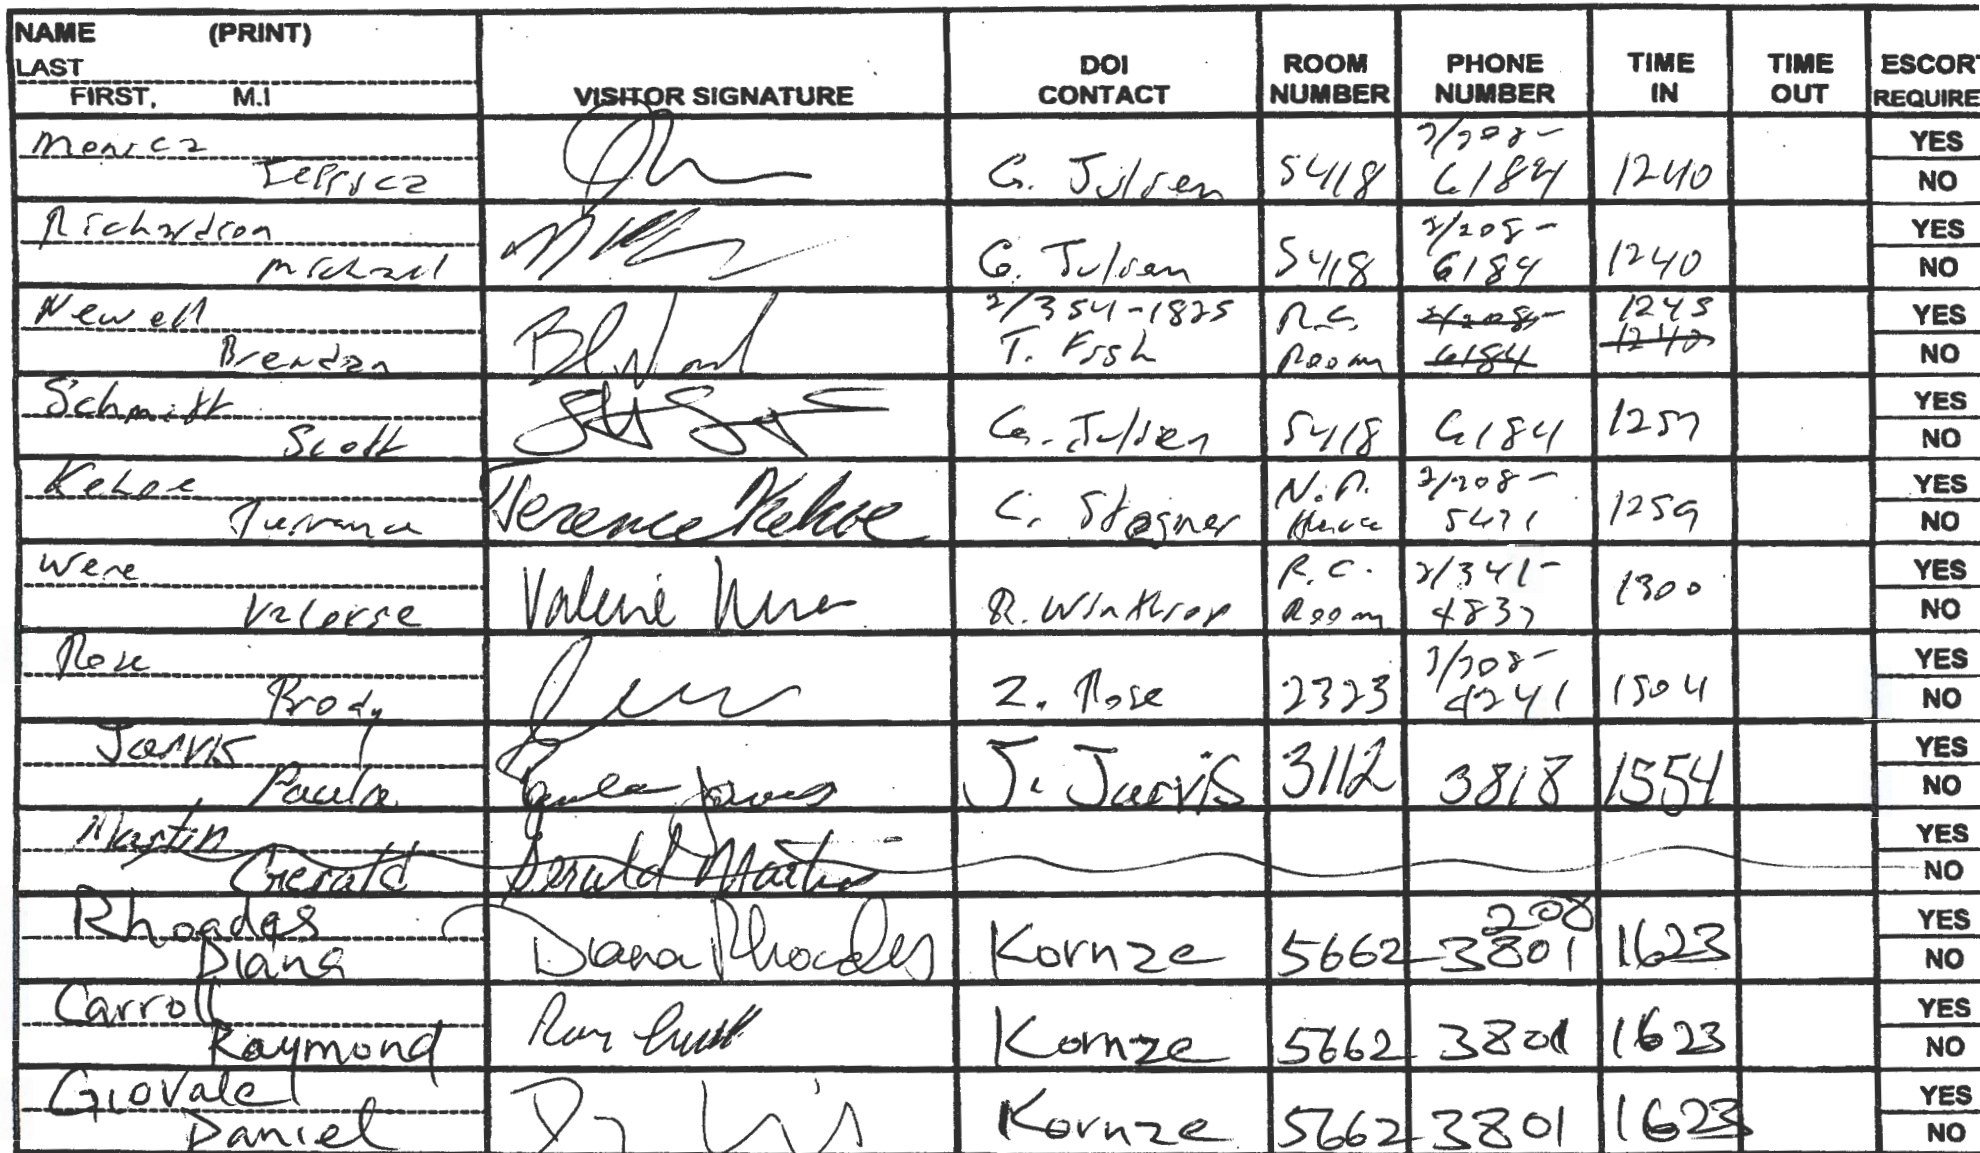 NAME (PRINT)
LAST
FIRST, M.I
VISITOR SIGNATURE
DOI CONTACT
ROOM NUMBER
PHONE NUMBER
TIME IN
TIME OUT
ESCORT REQUIRE
Jessica G. Julsen 5418 2/208-6184 1240 YES NO
Richardson
Michael G. Julsen 5418 2/208-6184 1240 YES NO
Newell 2/354-1825 R.C. 2/208- 1245 YES
Brendan T. Fish Room 6184 1240 NO
Schmitt
Scott G. Julsen 5418 6184 1257 YES NO
Kehoe
Terence Kehoe C. Stagner N.A. 2/208-5471 1259 YES NO
Were
Valerie Valerie Were R. Winthrop R.C. Room 2/341-4837 1300 YES NO
Rose
Brody Z. Rose 2323 2/208-4241 1504 YES NO
Jarvis
Paula Paula Jarvis J. Jarvis 3112 3818 1554 YES NO
Martin
Gerald Gerald Martin YES NO
Rhoades
Diana Diana Rhoades Kornze 5662 208 3801 1623 YES NO
Carroll
Raymond Kornze 5662 3801 1623 YES NO
Giovale
Daniel Kornze 5662 3801 1623 YES NO